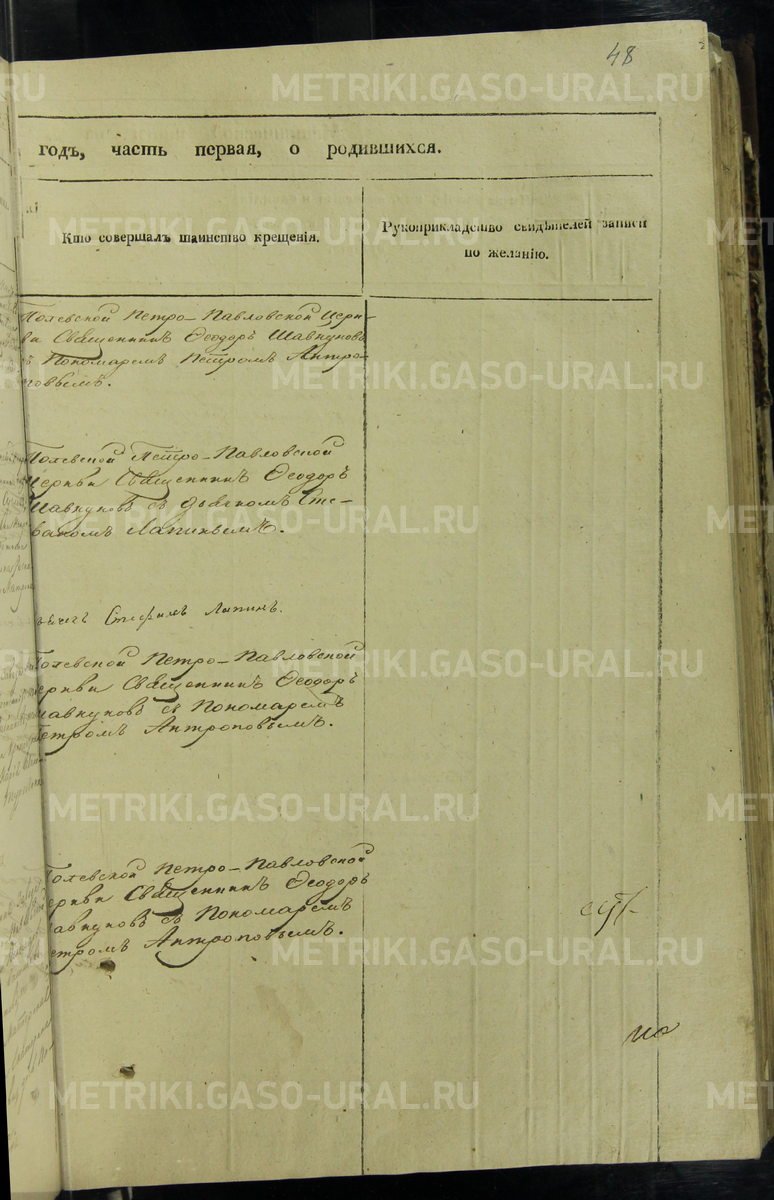 48
годъ, часть первая, о родившихся.
Кто совершалъ таинство крещенія.
Рукоприкладство свидѣтелей записи
по желанію.
Полевской Петро-Павловской Церк-
ви Священникъ Ѳеодоръ Шавкуновъ
съ Пономаремъ Петромъ Антро-
повымъ.
Полевской Петро-Павловской
Церкви Священникъ Ѳеодоръ
Шавкуновъ съ дьячкомъ Сте-
фаномъ Лапинымъ.
Стефанъ Лапинъ.
Полевской Петро-Павловской
Церкви Священникъ Ѳеодоръ
Шавкуновъ съ Пономаремъ
Петромъ Антроповымъ.
Полевской Петро-Павловской
Церкви Священникъ Ѳеодоръ
Шавкуновъ съ Пономаремъ
Петромъ Антроповымъ.
METRIKI.GASO-URAL.RU